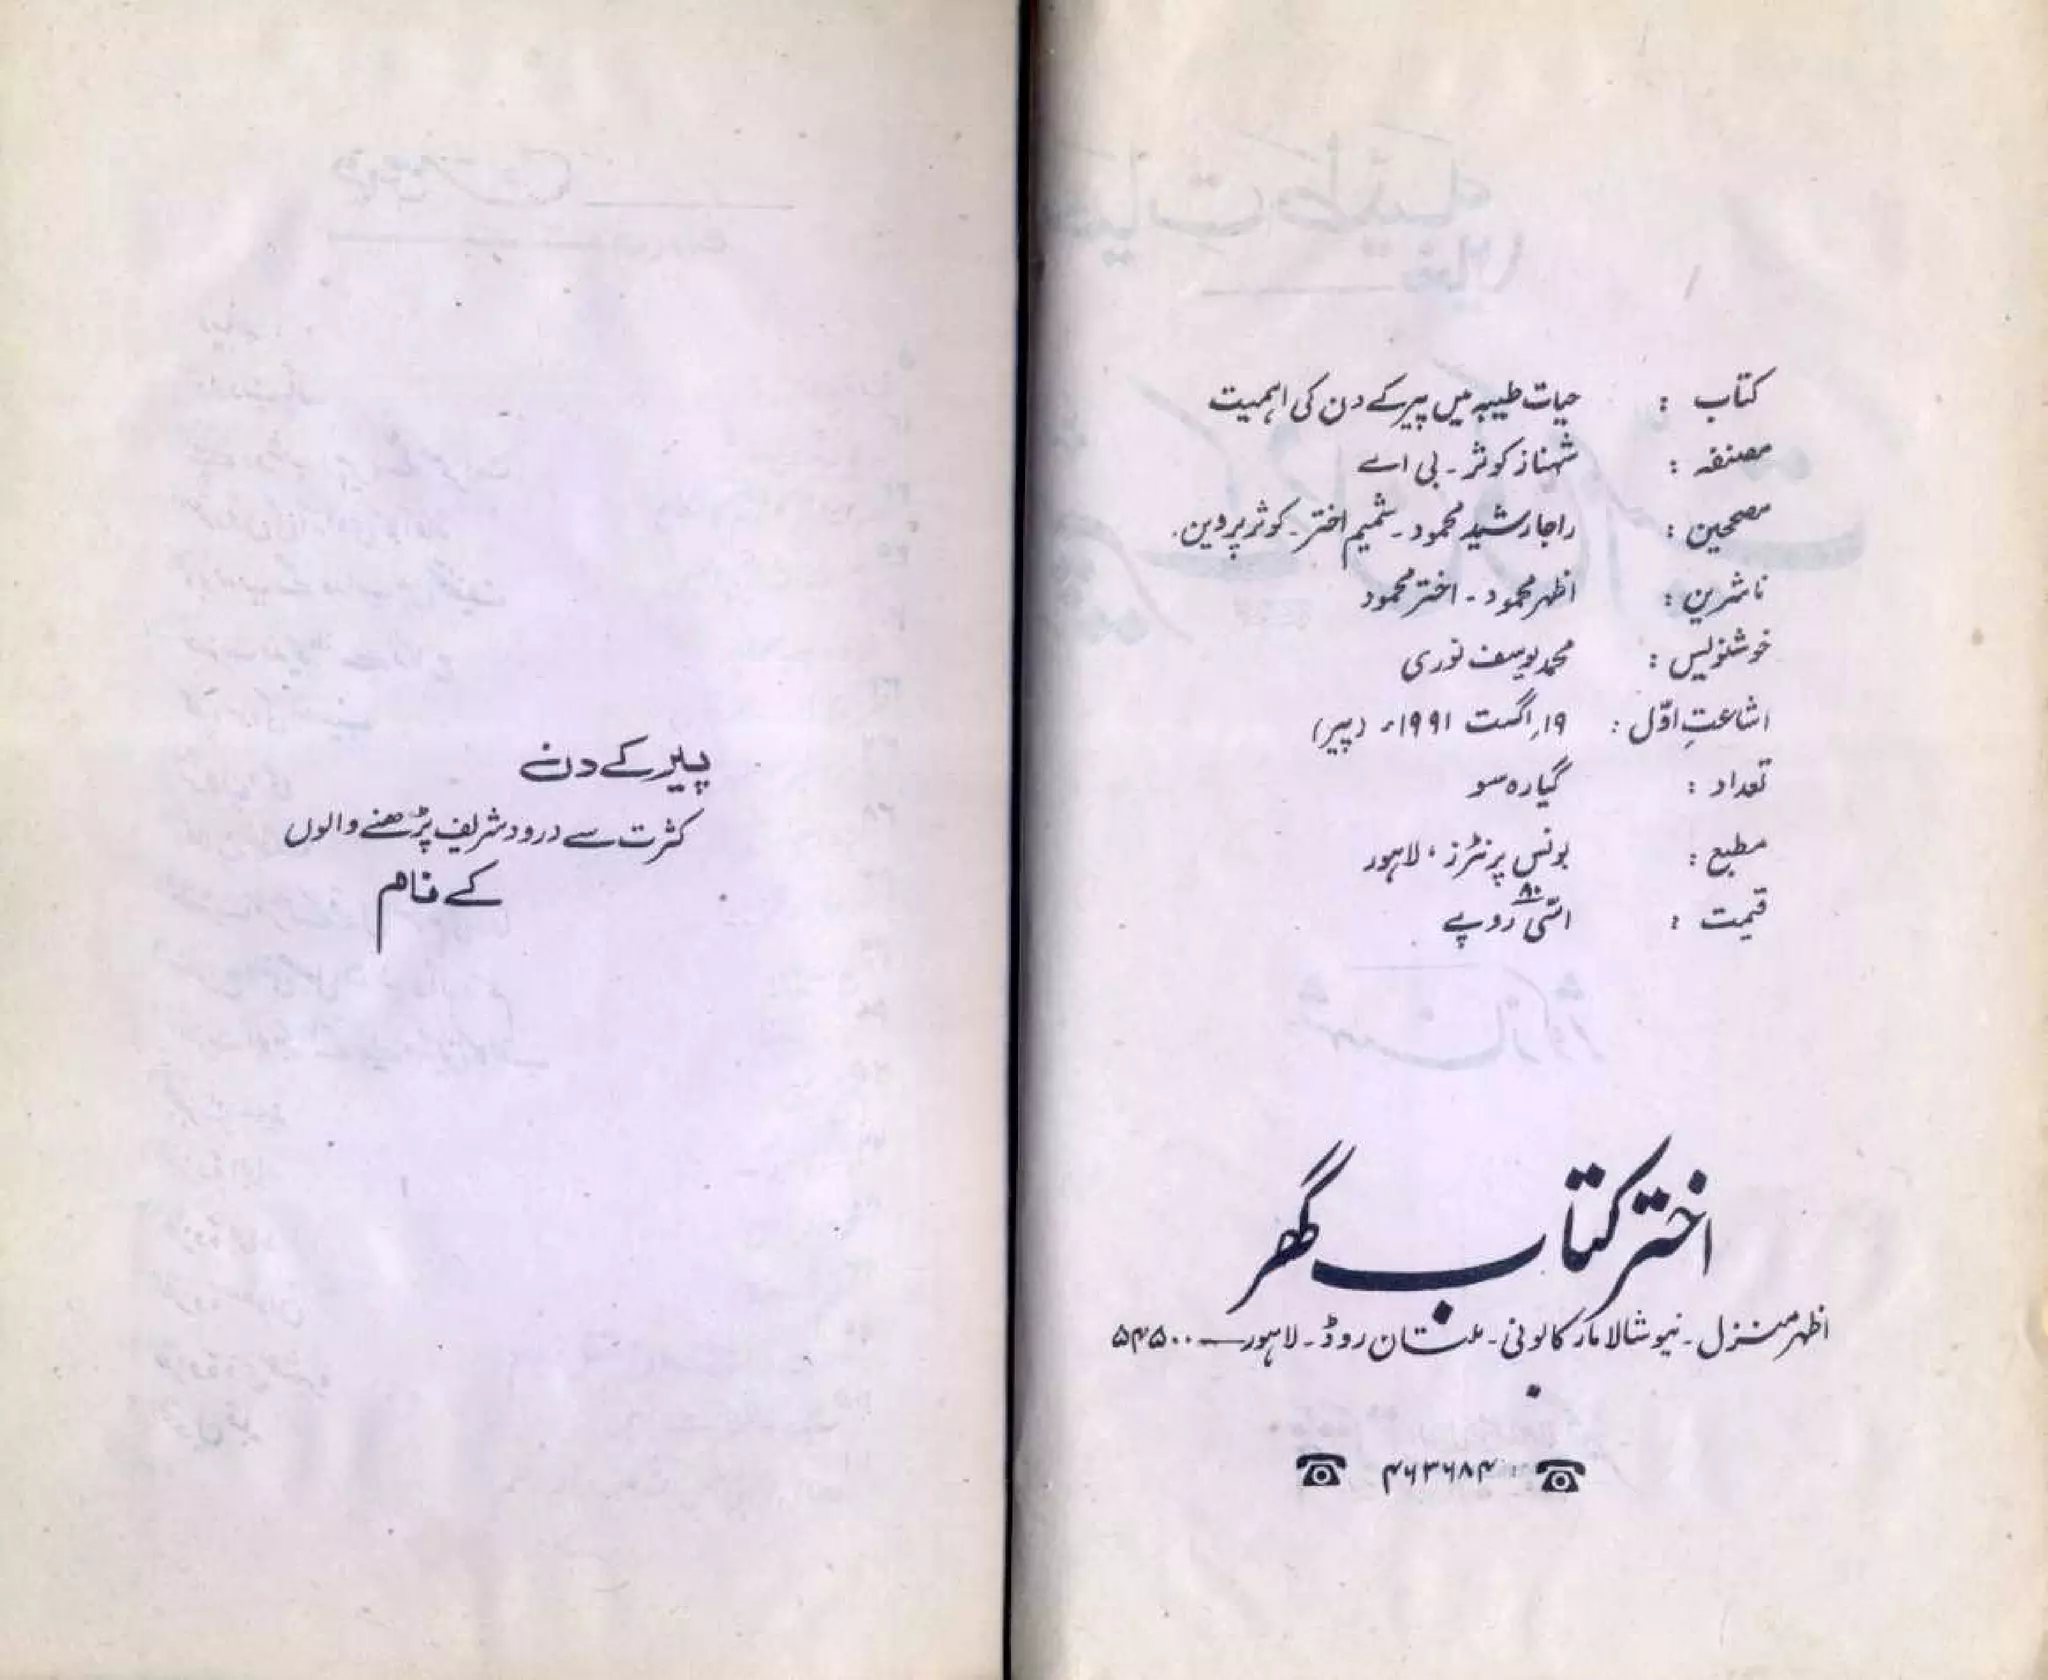 کتاب : حیات طیبہ میں پیر کے دن کی اہمیت
مصنفہ : شہناز کوثر ۔ بی اے
مصححین : راجا رشید محمود ۔ شمیم اختر ۔ کوثر پروین ۔
ناشرین : اظہر محمود ۔ اختر محمود
خوشنویس : محمد یوسف نوری
اشاعتِ اوّل : ۱۹؍ اگست ۱۹۹۱ء (پیر)
تعداد : گیارہ سو
مطبع : بونس پرنٹرز، لاہور
قیمت : اسّی ۸۰ روپے
اختر کتاب گھر
اظہر منزل ۔ نیو شالامار کالونی ۔ ملتان روڈ ۔ لاہور ــ ۵۴۵۰۰
☎ ۴۶۳۶۸۴ ☎
پیر کے دن
کثرت سے درود شریف پڑھنے والوں
کے نام